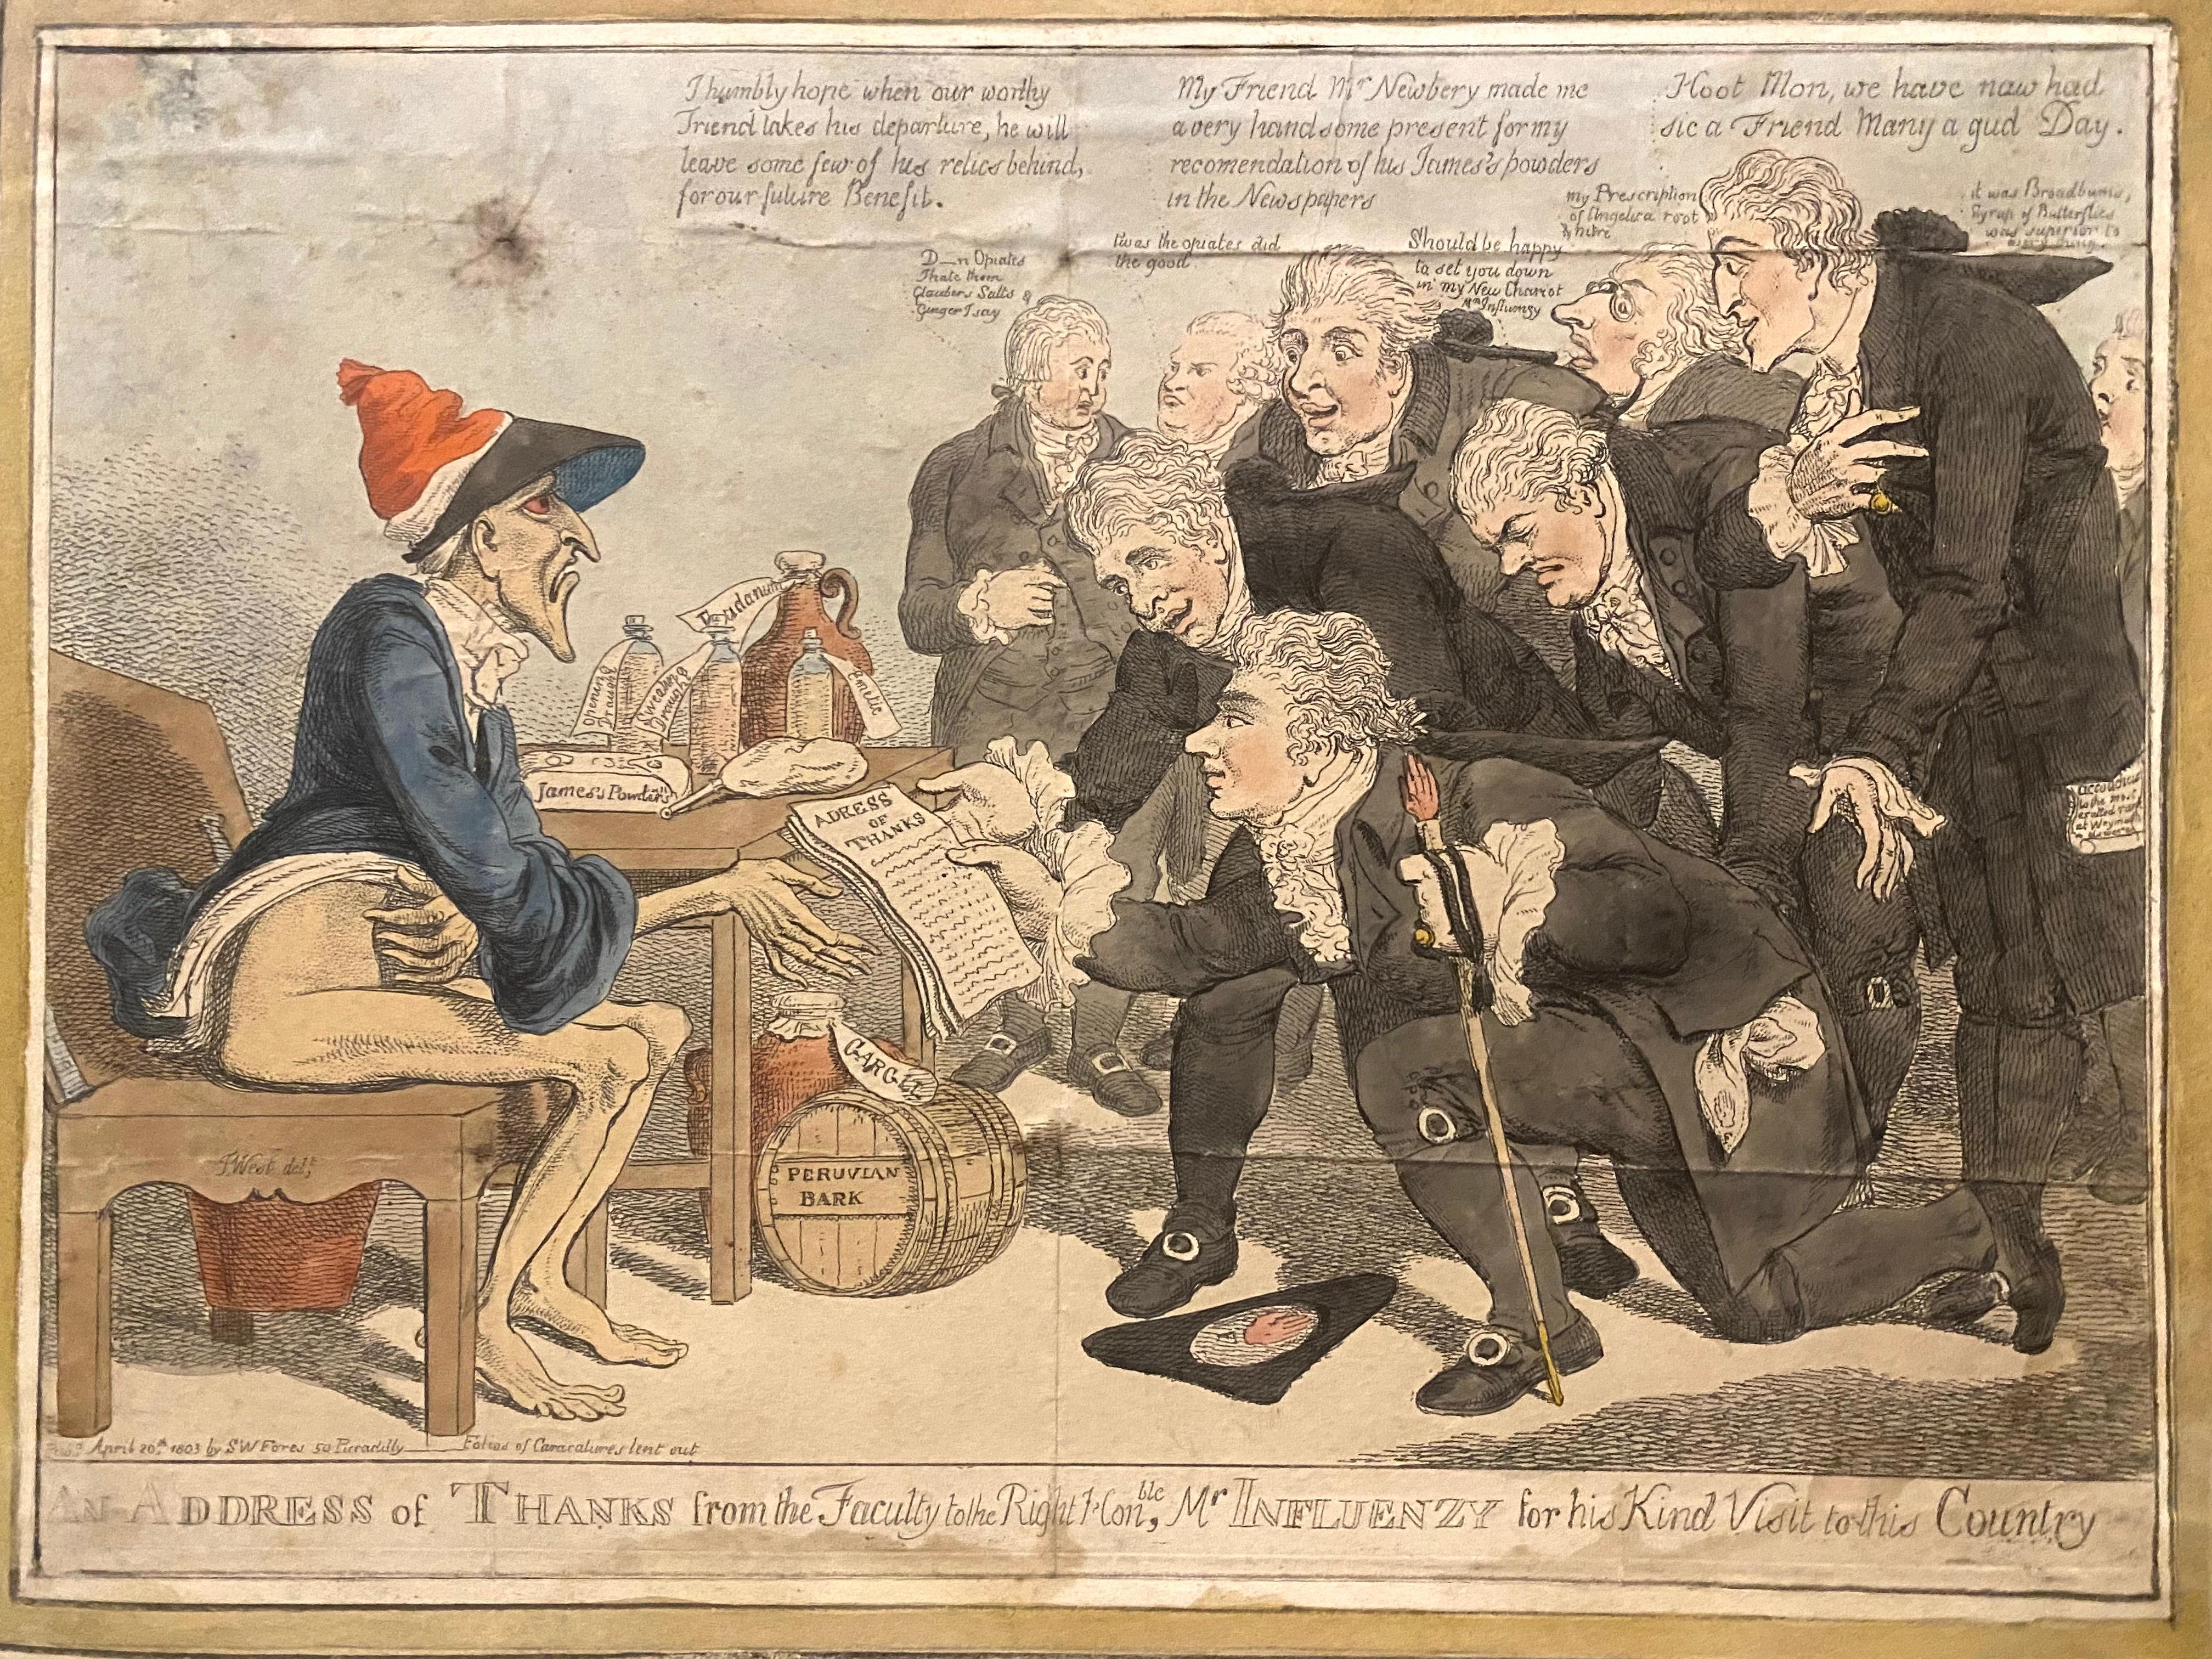 I humbly hope when our worthy
Friend takes his departure, he will
leave some few of his relics behind,
for our future Benefit.
My Friend Mr Newbery made me
a very handsome present for my
recomendation of his James's powders
in the Newspapers
Hoot Mon, we have naw had
sic a Friend Many a gud Day.
my Prescription
of Angelica root
& nitre
it was Broadbums,
Syrup of Butterflies
was superior to
any thing.
D—n Opiates
I hate them
Glaubers Salts &
Ginger I say
twas the opiates did
the good
Should be happy
to set you down
in my New Chariot
Mr Influenzy
Laudanum
Opening
Draught
Sweating
Draught
Emetic
James's Powders
ADRESS
OF
THANKS
GARGLE
PERUVIAN
BARK
to the most
exalted rank
at
JWest delt
April 20th 1803 by SW Fores 50 Piccadilly Folios of Caracatures lent out
AN ADDRESS of THANKS from the Faculty to the Right Honble, Mr INFLUENZY for his Kind Visit to this Country